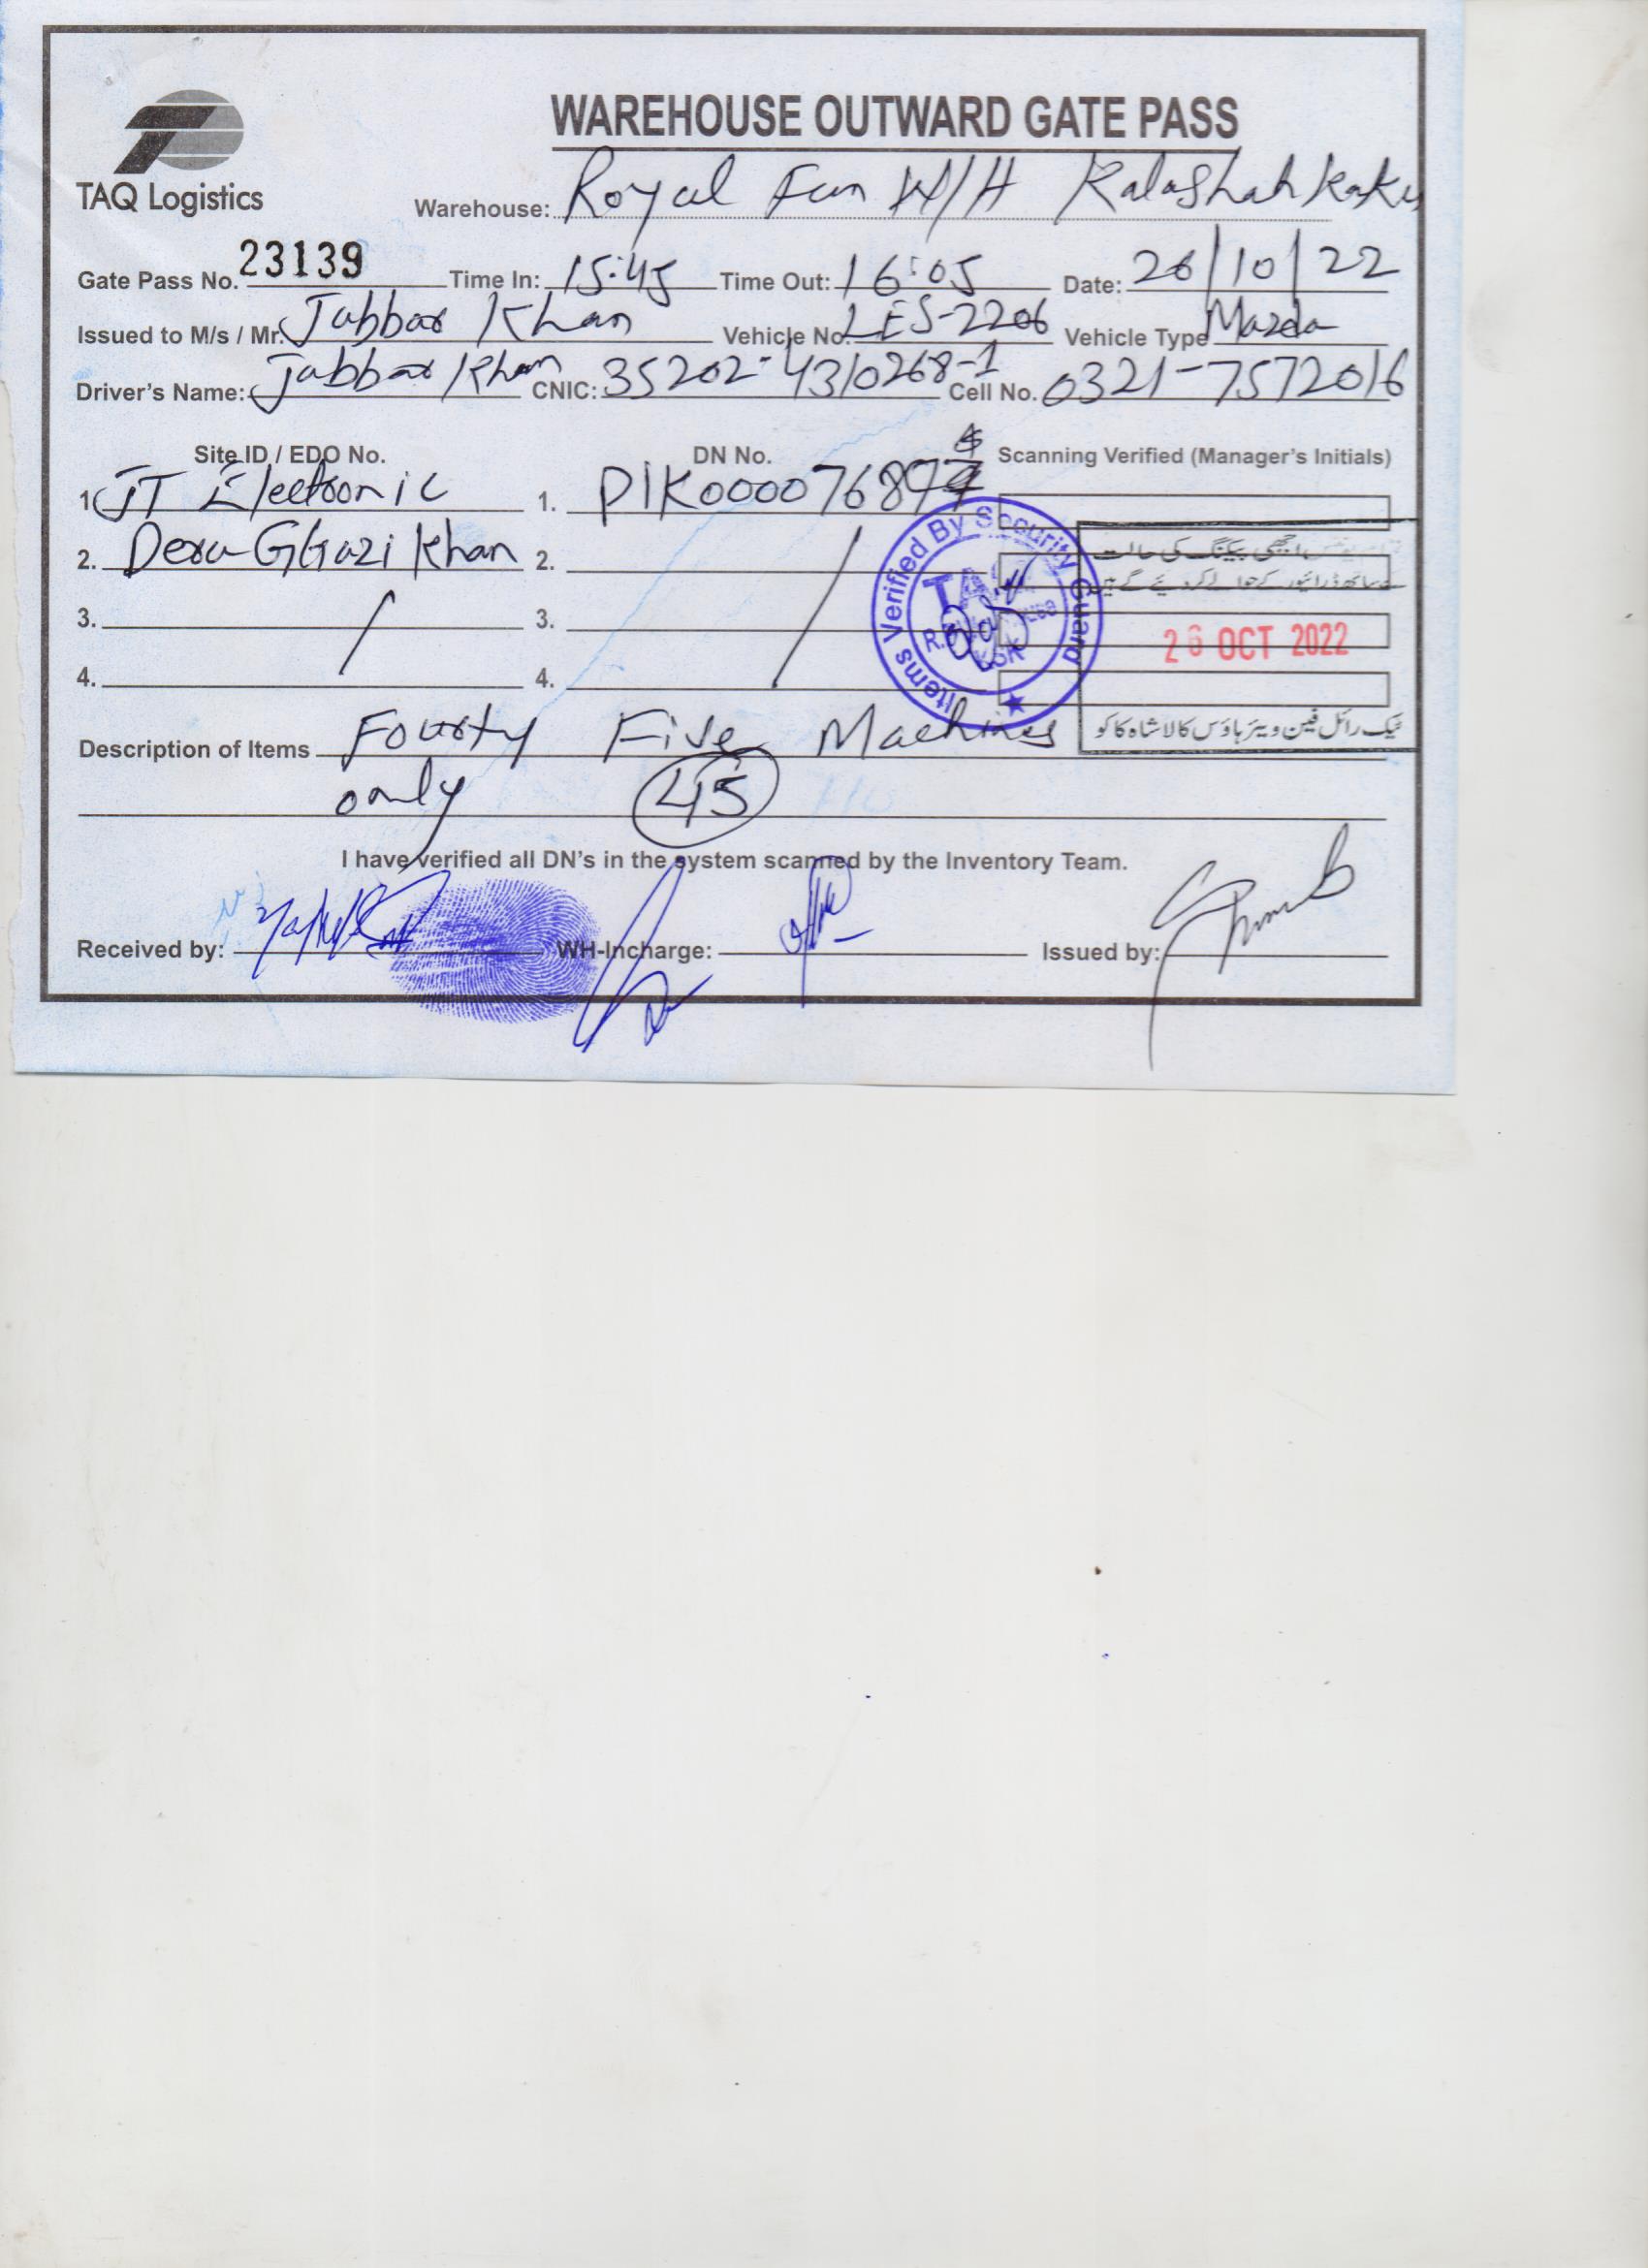 WAREHOUSE OUTWARD GATE PASS
TAQ Logistics
Warehouse: Royal Fan W/H Kalashah Kaku
Gate Pass No. 23139 Time In: 15:45 Time Out: 16:05 Date: 26/10/22
Issued to M/s / Mr. Jabbar Khan Vehicle No. LES-2206 Vehicle Type Mazda
Driver's Name: Jabbar Khan CNIC: 35202-4310268-1 Cell No. 0321-7572016
Site ID / EDO No. DN No. Scanning Verified (Manager's Initials)
1. JT Electronic 1.
2. Dera GHazi Khan 2.
3. 3.
4. 4.
Items Verified By Security Guard
TAQ
KSK
اچھی پیکنگ کی حالت
کے ساتھ ڈرائیور کے حوالے کر دیئے گئے ہیں
26 OCT 2022
ٹیک رائل فین ویئر ہاؤس کالا شاہ کاکو
Description of Items Fourty Five Machines
only 45
I have verified all DN's in the system scanned by the Inventory Team.
Received by: WH-Incharge: Issued by: